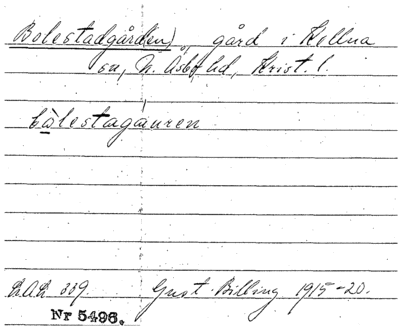 Bolestadgården), gård i Källna
sn, N. Åsbo hd, Krist. l.
bålestagåuren
L.A.L. 339. Gust. Billing 1915-20.
Nr 5496.